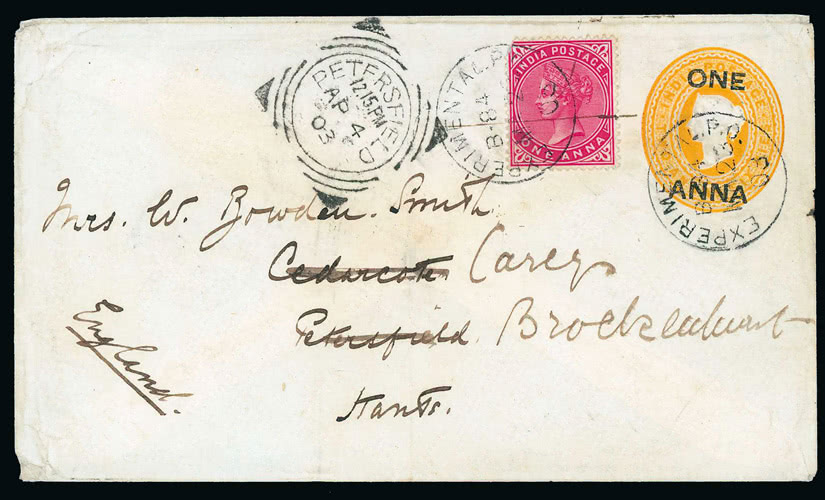 PETERSFIELD
12.15PM
AP 4
03
EXPERIMENTAL P.O.
B-84
03
INDIA POSTAGE
ONE ANNA
ONE
ANNA
EXPERIMENTAL P.O.
03
Mrs. W. Bowden. Smith
Cedarcote Careys
Petersfield Brockenhurst
Hants.
England.